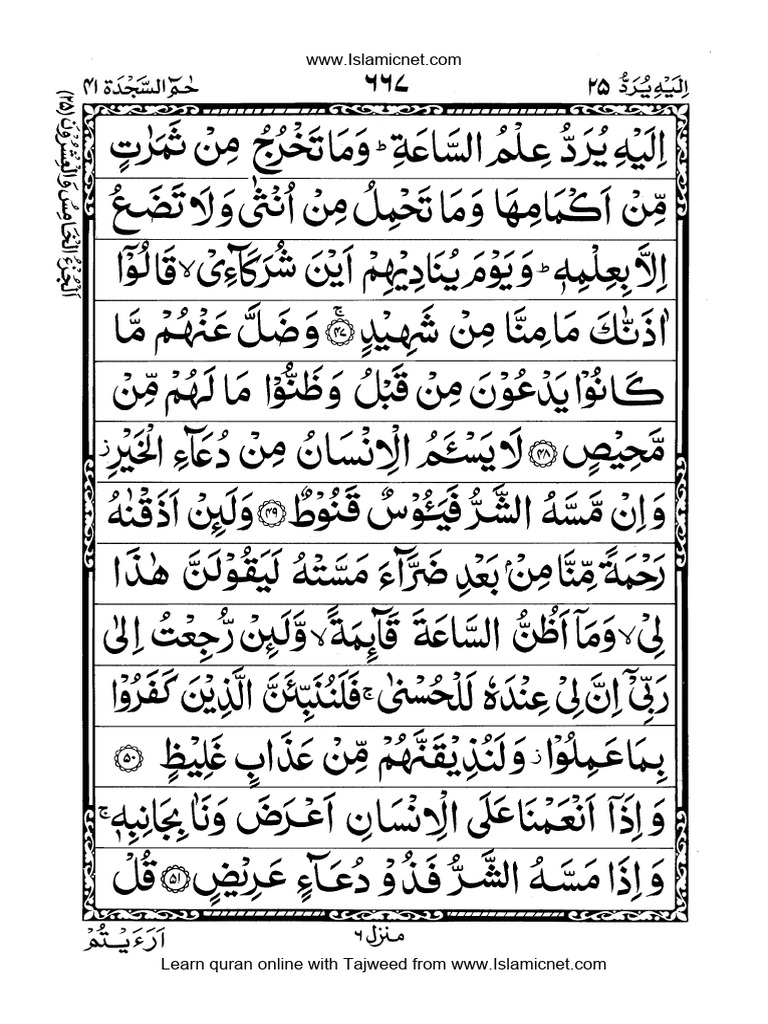 www.Islamicnet.com
اِلَیْهِ یُرَدُّ ۲۵
٦٦٧
حٰمٓ السَّجْدَة ۴۱
اَلْجُزْءُ الْخَامِسُ وَالْعِشْرُوْنَ (۲۵)
اِلَیْهِ یُرَدُّ عِلْمُ السَّاعَةِ ؕ وَمَا تَخْرُجُ مِنْ ثَمَرٰتٍ
مِّنْ اَكْمَامِهَا وَمَا تَحْمِلُ مِنْ اُنْثٰی وَلَا تَضَعُ
اِلَّا بِعِلْمِهٖ ؕ وَیَوْمَ یُنَادِیْهِمْ اَیْنَ شُرَكَآءِیْ ۙ قَالُوْۤا
اٰذَنّٰكَ مَا مِنَّا مِنْ شَهِیْدٍ ۚ ﴿۴۷﴾ وَضَلَّ عَنْهُمْ مَّا
كَانُوْا یَدْعُوْنَ مِنْ قَبْلُ وَظَنُّوْا مَا لَهُمْ مِّنْ
مَّحِیْصٍ ﴿۴۸﴾ لَا یَسْـَٔمُ الْاِنْسَانُ مِنْ دُعَآءِ الْخَیْرِ ؗ
وَاِنْ مَّسَّهُ الشَّرُّ فَیَـُٔوْسٌ قَنُوْطٌ ﴿۴۹﴾ وَلَئِنْ اَذَقْنٰهُ
رَحْمَةً مِّنَّا مِنْۢ بَعْدِ ضَرَّآءَ مَسَّتْهُ لَیَقُوْلَنَّ هٰذَا
لِیْ ۙ وَمَاۤ اَظُنُّ السَّاعَةَ قَآئِمَةً ۙ وَّلَئِنْ رُّجِعْتُ اِلٰی
رَبِّیْۤ اِنَّ لِیْ عِنْدَهٗ لَلْحُسْنٰی ۚ فَلَنُنَبِّئَنَّ الَّذِیْنَ كَفَرُوْا
بِمَا عَمِلُوْا ؗ وَلَنُذِیْقَنَّهُمْ مِّنْ عَذَابٍ غَلِیْظٍ ﴿۵۰﴾
وَاِذَاۤ اَنْعَمْنَا عَلَی الْاِنْسَانِ اَعْرَضَ وَنَاٰ بِجَانِبِهٖ ۚ
وَاِذَا مَسَّهُ الشَّرُّ فَذُوْ دُعَآءٍ عَرِیْضٍ ﴿۵۱﴾ قُلْ
منزل ٦
اَرَءَیْتُمْ
Learn quran online with Tajweed from www.Islamicnet.com